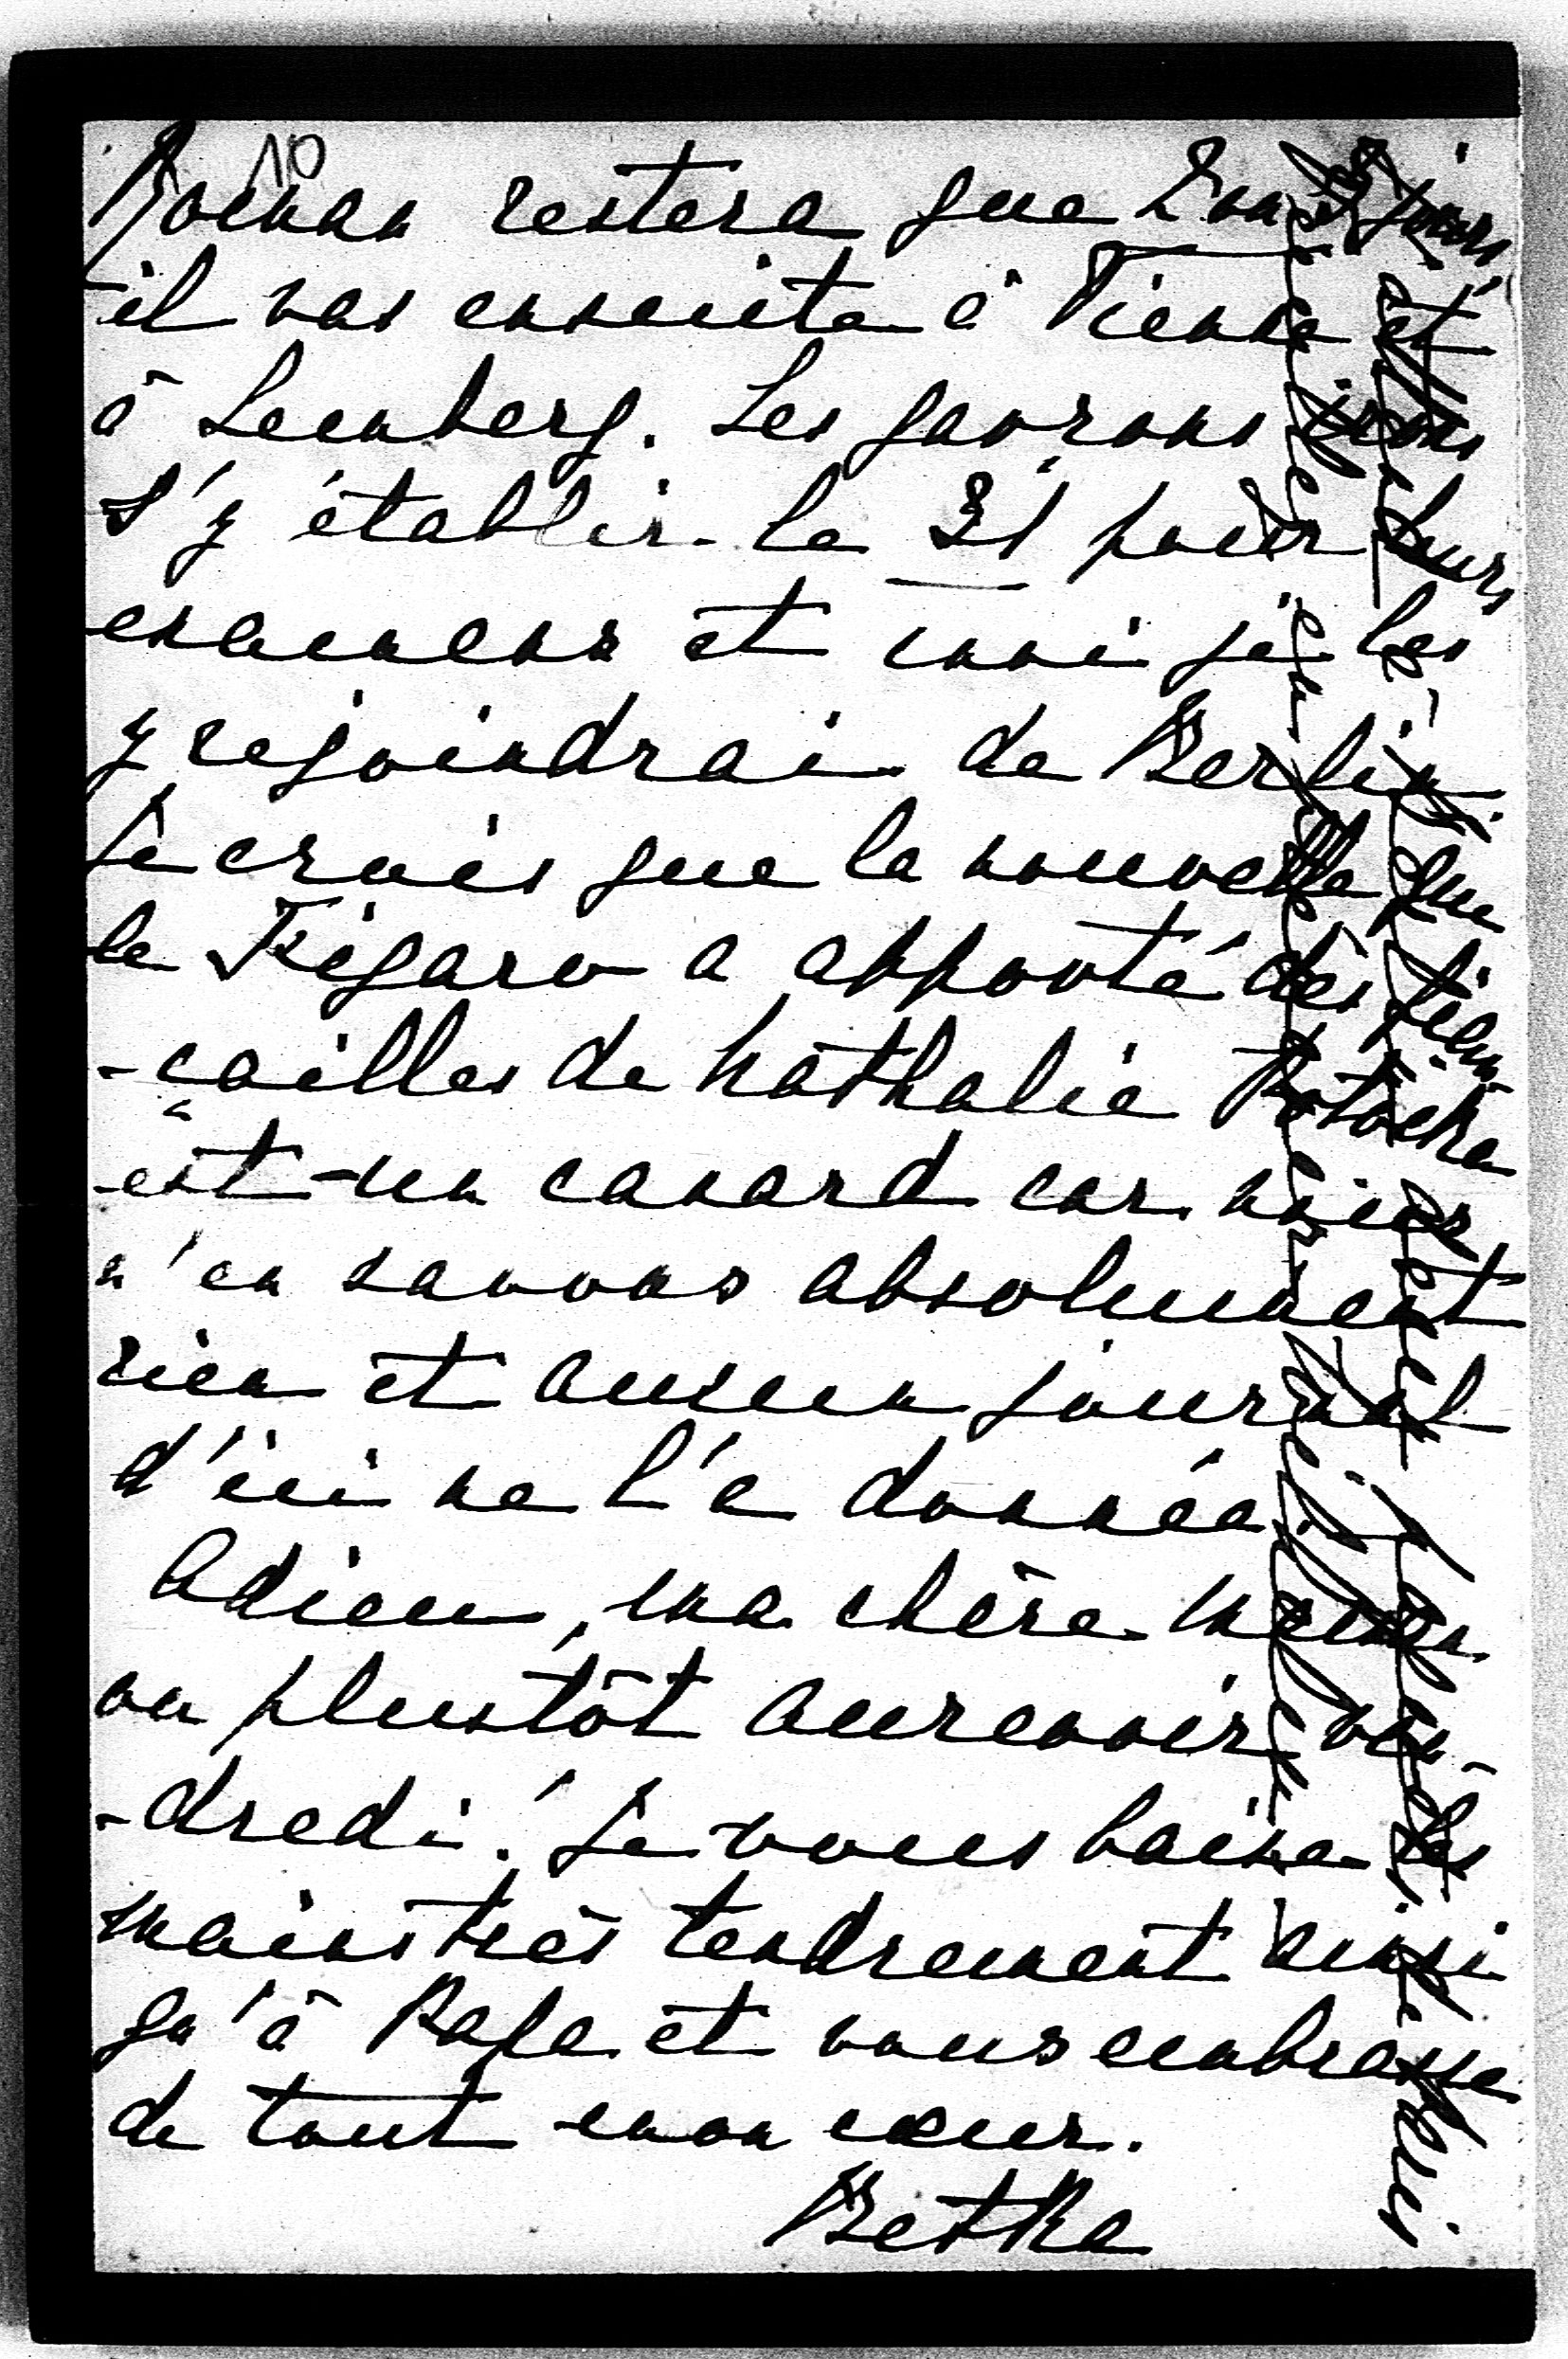 10
Roman restera que 2 ou 3 jours
il vas ensuite à Vienne et
à Lemberg. Les garçons irons
s'y établir le 31 pour leurs
examens et moi je les
y rejoindrai de Berlin.
Je crois que la nouvelle que
le Figaro a apporté des fian-
-çailles de Nathalie Potocka
est un canard car nous
n'en savons absolument
rien et aucun journal
d'ici ne l'a donnée.
Adieu, ma chère Maman
ou plustôt aurevoir ven-
-dredi! Je vous baise les
mains très tendrement ainsi
qu'à Papa et vous embrasse
de tout mon cœur.
Betka